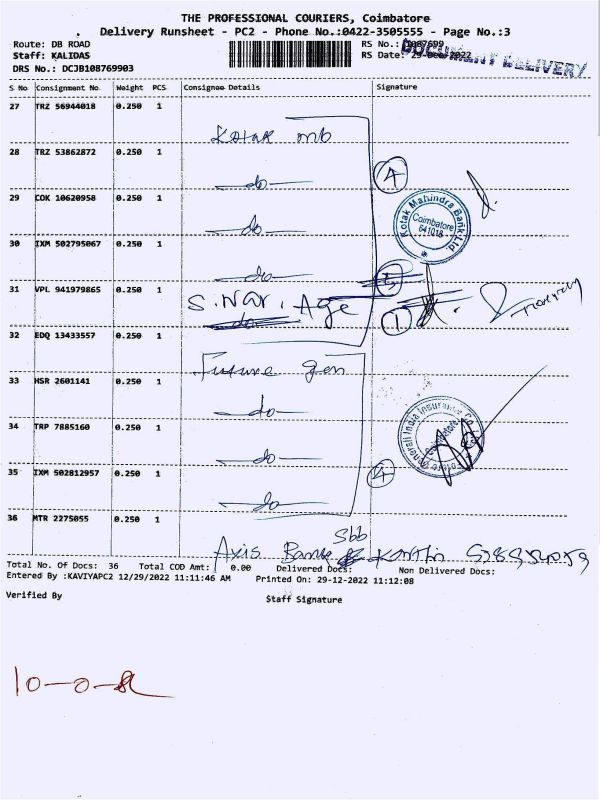 THE PROFESSIONAL COURIERS, Coimbatore
Delivery Runsheet - PC2 - Phone No.:0422-3505555 - Page No.:3
Route: DB ROAD
RS No.:
Staff: KALIDAS
RS Date: 29-Dec-2022
DOCUMENT DELIVERY
DRS No.: DCJB108769903
S No Consignment No Weight PCS Consignee Details Signature
27 TRZ 56944018 0.250 1 Kotak mb
28 TRZ 53862872 0.250 1 -do- 4
29 COK 10620958 0.250 1 -do-
Kotak Mahindra Bank Ltd
Coimbatore
641018
30 IXM 502795067 0.250 1 -do-
31 VPL 941979865 0.250 1 S. Nar. Age 1
32 EDQ 13433557 0.250 1 Future gen
33 HSR 2601141 0.250 1 -do-
34 TRP 7885160 0.250 1 -do-
Generali India Insurance Co
Coimbatore
35 IXM 502812957 0.250 1 -do- 4
36 MTR 2275055 0.250 1 Axis Bank
Total No. Of Docs: 36 Total COD Amt: 0.00 Delivered Docs: Non Delivered Docs:
Entered By :KAVIYAPC2 12/29/2022 11:11:46 AM Printed On: 29-12-2022 11:12:08
Verified By Staff Signature
10-0-